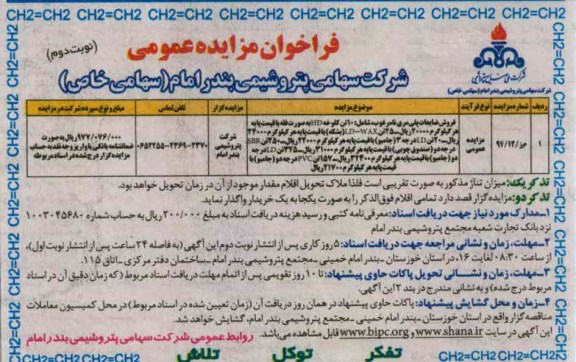 CH2=CH2 CH2=CH2 CH2=CH2 CH2=CH2 CH2=CH2 CH2=CH2 CH2=CH2 CH2=CH2
فراخوان مزایده عمومی
(نوبت دوم)
شرکت سهامی پتروشیمی بندر امام (سهامی خاص)
شرکت سهامی پتروشیمی بندر امام (سهامی خاص)
ردیف
شماره مزایده
نوع فرآیند
موضوع مزایده
مزایده گزار
تلفن تماس
مبلغ و نوع سپرده شرکت در مزایده
۱
مز/۹۷/۱۲
مزایده عمومی
شرکت پتروشیمی بندر امام
۰۶۵۲۲۵۵-۲۴۶۹-۲۴۷۰
۹۷۷/۰۷۶/۰۰۰ ریال به صورت ضمانتنامه بانکی یا واریز وجه نقد به حساب مزایده گزار درج شده در اسناد مربوطه
تذکر یک: میزان تناژ مذکور به صورت تقریبی است فلذا ملاک تحویل اقلام مقدار موجود از آن در زمان تحویل خواهد بود.
تذکر دو: مزایده گزار قصد دارد تمامی اقلام فوق الذکر را به صورت یکجا به یک خریدار واگذار نماید.
۱-مدارک مورد نیاز جهت دریافت اسناد: معرفی نامه کتبی و رسید هزینه دریافت اسناد به مبلغ ۲۰۰/۰۰۰ ریال به حساب شماره ۱۰۰۳۰۴۵۶۸۰
نزد بانک تجارت شعبه مجتمع پتروشیمی بندر امام
۲-مهلت، زمان و نشانی مراجعه جهت دریافت اسناد: ۵ روز کاری پس از انتشار نوبت دوم این آگهی (به فاصله ۲۴ ساعت پس از انتشار نوبت اول)،
از ساعت ۰۸:۳۰ لغایت ۱۶، در استان خوزستان -بندر امام خمینی -مجتمع پتروشیمی بندر امام -ساختمان دفتر مرکزی -اتاق ۱۱۵.
۳-مهلت، زمان و نشانی تحویل پاکات حاوی پیشنهاد: تا ۱۰ روز تقویمی پس از اتمام مهلت دریافت اسناد مربوط (که زمان دقیق آن در اسناد
مربوط درج شده) و به نشانی مندرج در بند ۲ این آگهی.
۴-زمان و محل گشایش پیشنهاد: پاکات حاوی پیشنهاد در همان روز دریافت آن (زمان تعیین شده در اسناد مربوط) در محل کمیسیون معاملات
مناقصه گزار واقع در استان خوزستان -بندر امام خمینی -مجتمع پتروشیمی بندر امام، گشایش خواهد شد.
این آگهی در سایت www.shana.ir و www.bipc.org قابل مشاهده می باشد. روابط عمومی شرکت سهامی پتروشیمی بندر امام
تفکر توکل تلاش
CH2=CH2 CH2=CH2 CH2=CH2